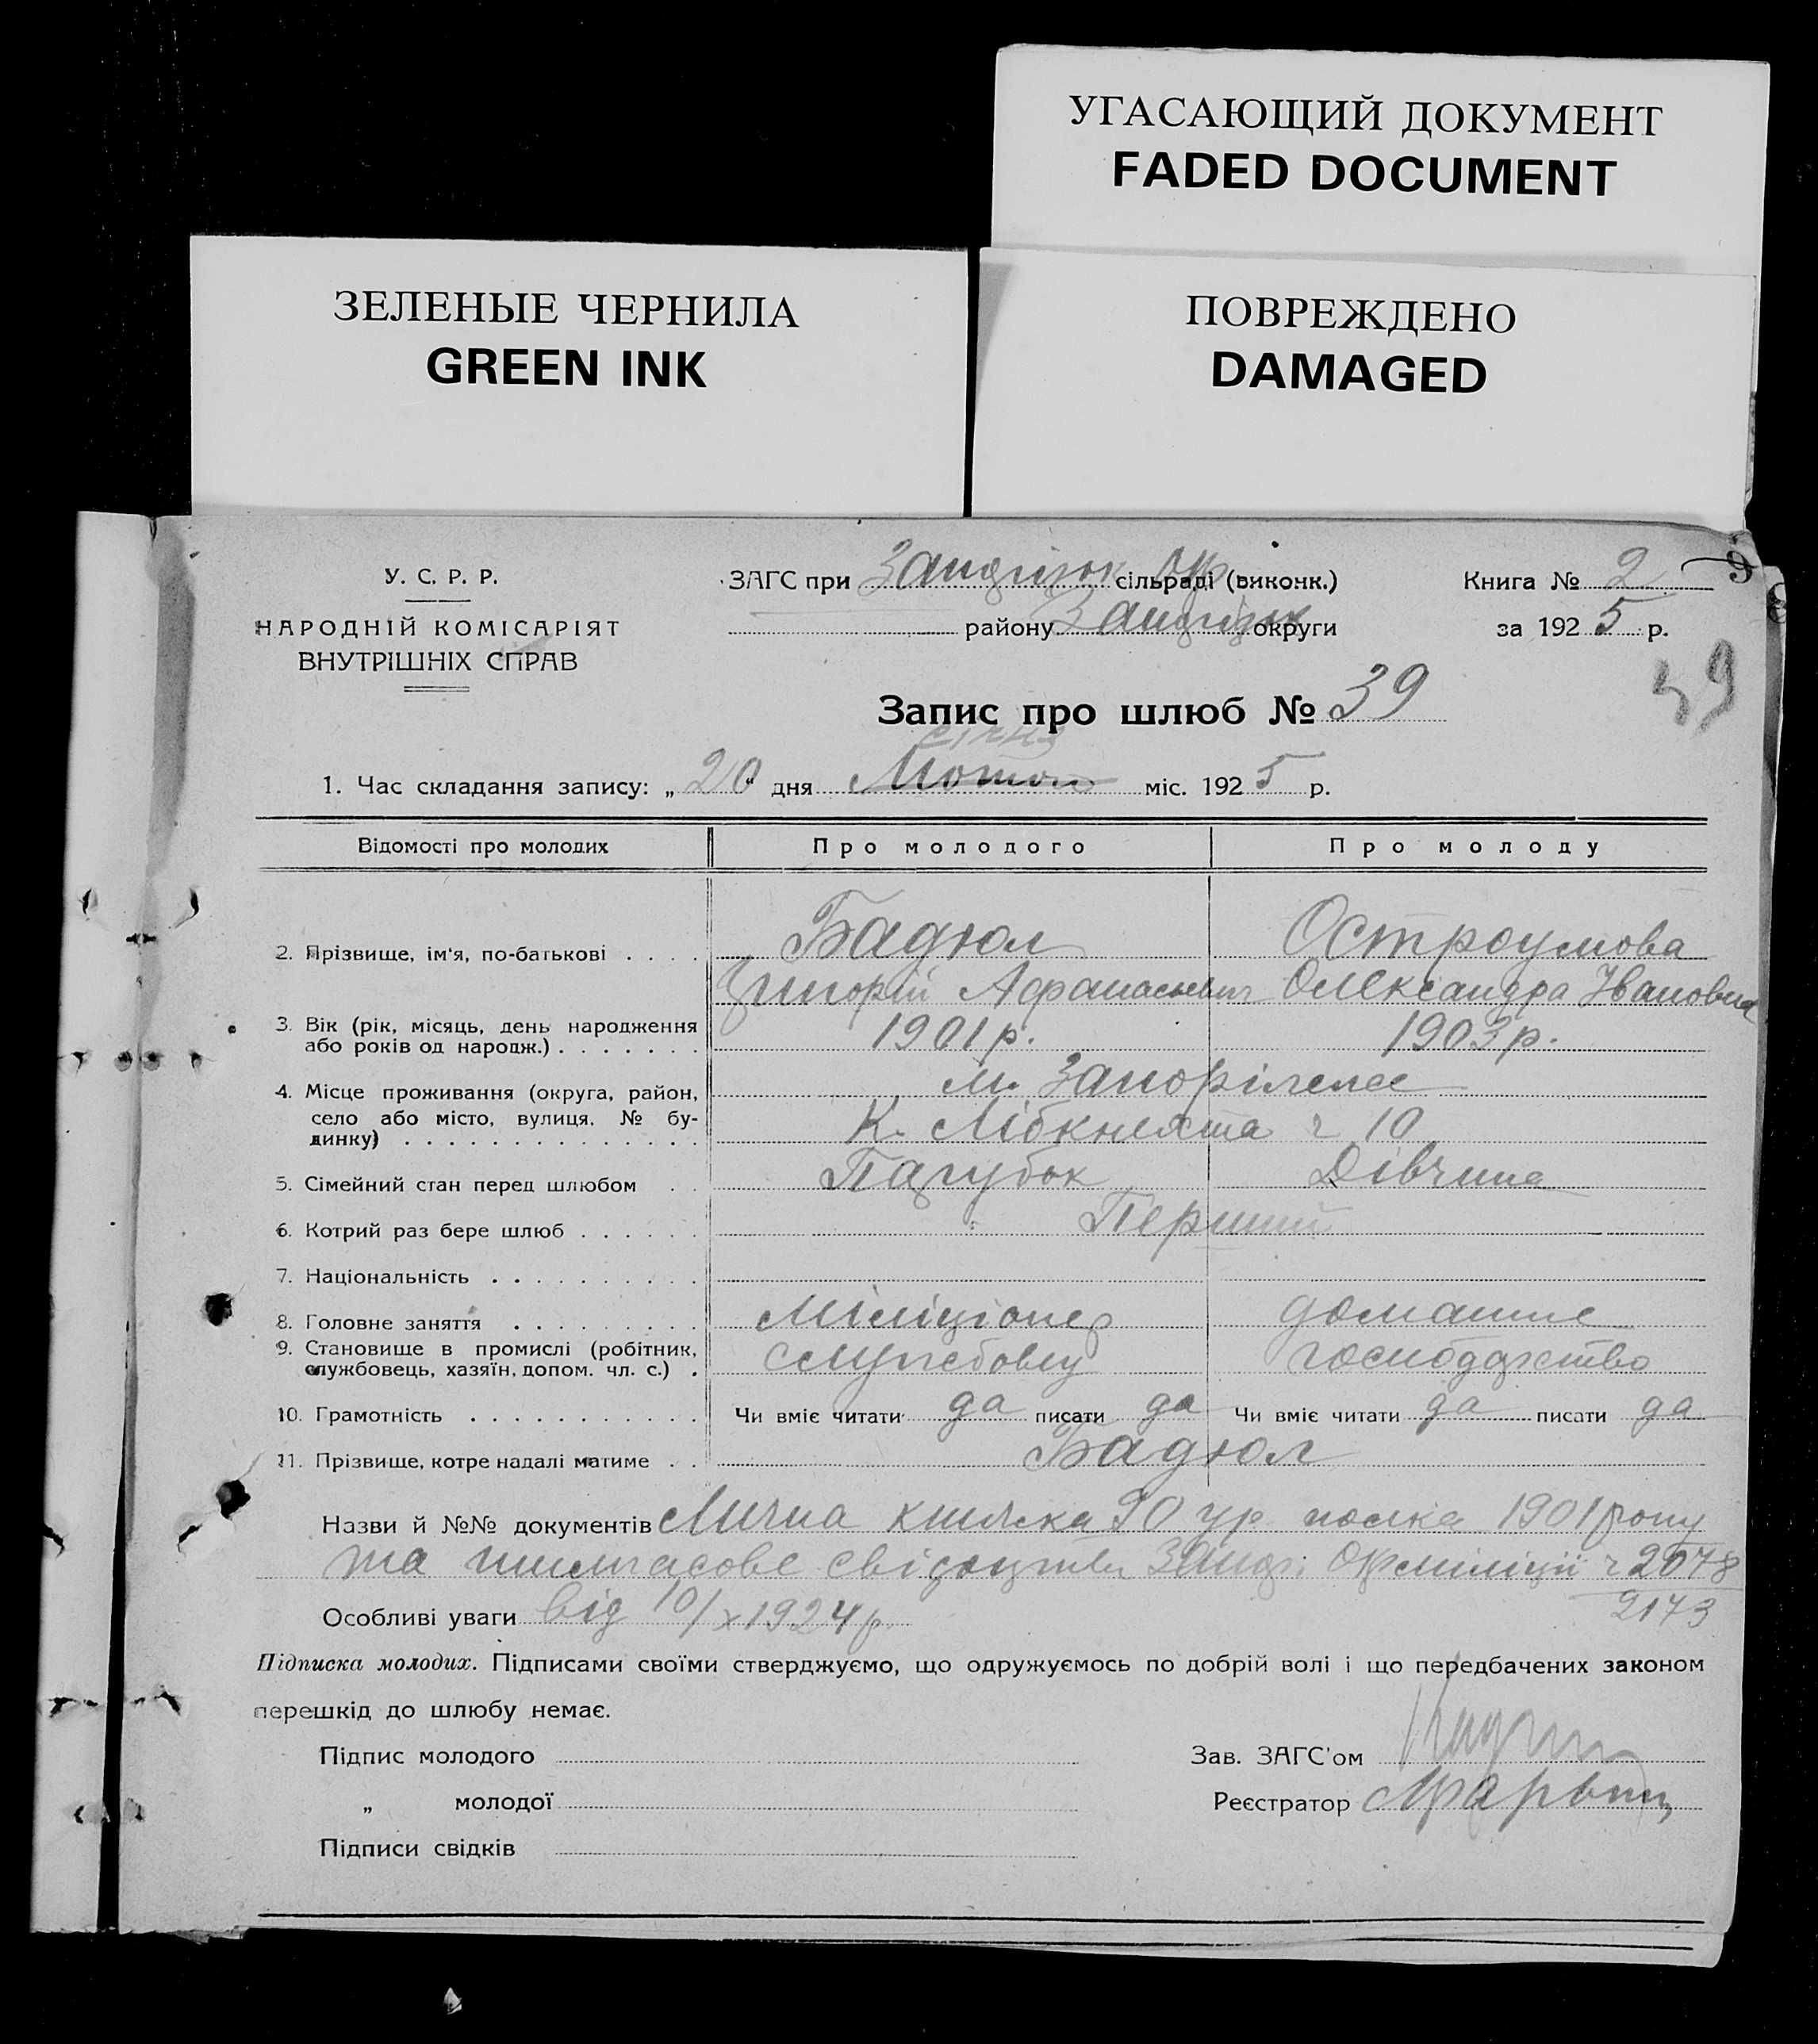 УГАСАЮЩИЙ ДОКУМЕНТ
FADED DOCUMENT
ЗЕЛЕНЫЕ ЧЕРНИЛА
GREEN INK
ПОВРЕЖДЕНО
DAMAGED
У. С. Р. Р.
НАРОДНІЙ КОМІСАРІЯТ
ВНУТРІШНІХ СПРАВ
ЗАГС при сільраді (виконк.)
району округи
Книга № 2
за 1925 р.
39
Запис про шлюб № 39
січня
1. Час складання запису: „20“ дня Лютого міс. 1925 р.
Відомості про молодих Про молодого Про молоду
2. Прізвище, ім'я, по-батькові . . . . Бадюл Остроумова
Григорій Афанасьевич Олександра Івановна
3. Вік (рік, місяць, день народження
або років од народж.) . . . . . . . 1901 р. 1903 р.
4. Місце проживання (округа, район, м. Запоріжжя
село або місто, вулиця. № бу- К. Лібкнехта ч 10
динку) . . . . . . . . . . . . . .
5. Сімейний стан перед шлюбом . . Парубок Дівчина
6. Котрий раз бере шлюб . . . . . . Перший
7. Національність . . . . . . . . . .
8. Головне заняття . . . . . . . . . Міліціонер домашнє
9. Становище в промислі (робітник,
службовець, хазяїн, допом. чл. с.) . службовец господарство
10. Грамотність . . . . . . . . . . . Чи вміє читати да писати да Чи вміє читати да писати да
11. Прізвище, котре надалі матиме . . Бадюл
Назви й №№ документів Лична книжка 90 полка 1901 року
та тимчасове свідоцтво Окрміліції ч 2078
2173
Особливі уваги від 10/X 1924 р.
Підписка молодих. Підписами своїми стверджуємо, що одружуємось по добрій волі і що передбачених законом
перешкід до шлюбу немає.
Підпис молодого
Зав. ЗАГС'ом
„ молодої
Реєстратор
Підписи свідків